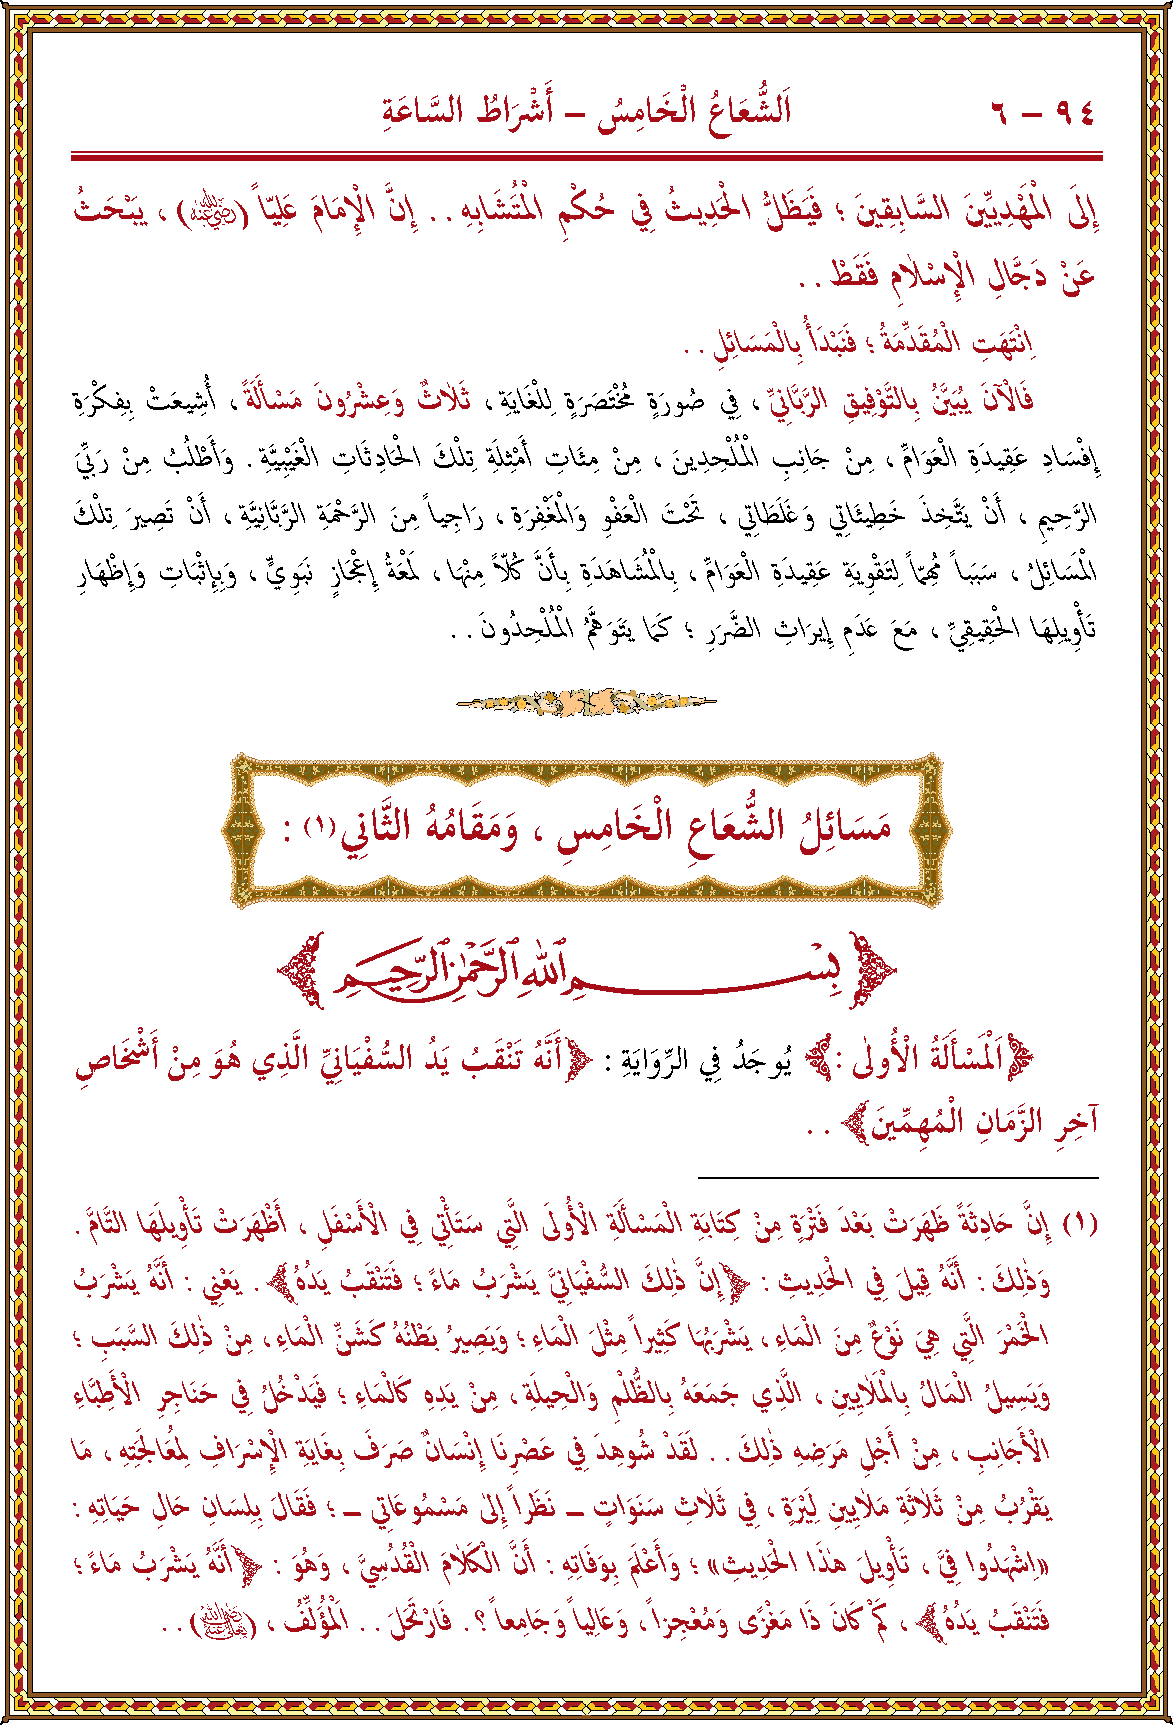 ٩٤ – ٦ اَلشُّعَاعُ الْخَامِسُ – أَشْرَاطُ السَّاعَةِ
إِلَى الْمَهْدِيِّينَ السَّابِقِينَ ؛ فَيَظَلُّ الْحَدِيثُ فِي حُكْمِ الْمُتَشَابِهِ . . إِنَّ الْإِمَامَ عَلِيّاً (رضي الله عنه) ، يَبْحَثُ
عَنْ دَجَّالِ الْإِسْلَامِ فَقَطْ . .
اِنْتَهَتِ الْمُقَدِّمَةُ ؛ فَنَبْدَأُ بِالْمَسَائِلِ . .
فَالْآنَ يُبَيَّنُ بِالتَّوْفِيقِ الرَّبَّانِيِّ ، فِي صُورَةٍ مُخْتَصَرَةٍ لِلْغَايَةِ ، ثَلَاثٌ وَعِشْرُونَ مَسْأَلَةً ، أُشِيعَتْ بِفِكْرَةِ
إِفْسَادِ عَقِيدَةِ الْعَوَامِّ ، مِنْ جَانِبِ الْمُلْحِدِينَ ، مِنْ مِئَاتِ أَمْثِلَةِ تِلْكَ الْحَادِثَاتِ الْغَيْبِيَّةِ . وَأَطْلُبُ مِنْ رَبِّيَ
الرَّحِيمِ ، أَنْ يَتَّخِذَ خَطِيئَاتِي وَغَلَطَاتِي ، تَحْتَ الْعَفْوِ وَالْمَغْفِرَةِ ، رَاجِياً مِنَ الرَّحْمَةِ الرَّبَّانِيَّةِ ، أَنْ تَصِيرَ تِلْكَ
الْمَسَائِلُ ، سَبَباً مُهِمّاً لِتَقْوِيَةِ عَقِيدَةِ الْعَوَامِّ ، بِالْمُشَاهَدَةِ بِأَنَّ كُلّاً مِنْهَا ، لَمْعَةُ إِعْجَازٍ نَبَوِيٍّ ، وَبِإِثْبَاتِ وَإِظْهَارِ
تَأْوِيلِهَا الْحَقِيقِيِّ ، مَعَ عَدَمِ إِيرَاثِ الضَّرَرِ ؛ كَمَا يَتَوَهَّمُ الْمُلْحِدُونَ . .
مَسَائِلُ الشُّعَاعِ الْخَامِسِ ، وَمَقَامُهُ الثَّانِي(١) :
بِسْمِ اللهِ الرَّحْمٰنِ الرَّحِيمِ
﴿اَلْمَسْأَلَةُ الْأُولٰى :﴾ يُوجَدُ فِي الرِّوَايَةِ : ﴿أَنَّهُ تَنْقَبُ يَدُ السُّفْيَانِيِّ الَّذِي هُوَ مِنْ أَشْخَاصِ
آخِرِ الزَّمَانِ الْمُهِمِّينَ﴾ . .
(١) إِنَّ حَادِثَةً ظَهَرَتْ بَعْدَ فَتْرَةٍ مِنْ كِتَابَةِ الْمَسْأَلَةِ الْأُولَى الَّتِي سَتَأْتِي فِي الْأَسْفَلِ ، أَظْهَرَتْ تَأْوِيلَهَا التَّامَّ .
وَذٰلِكَ : أَنَّهُ قِيلَ فِي الْحَدِيثِ : ﴿إِنَّ ذٰلِكَ السُّفْيَانِيَّ يَشْرَبُ مَاءً ؛ فَتَنْقَبُ يَدُهُ﴾ . يَعْنِي : أَنَّهُ يَشْرَبُ
الْخَمْرَ الَّتِي هِيَ نَوْعٌ مِنَ الْمَاءِ ، يَشْرَبُهَا كَثِيراً مِثْلَ الْمَاءِ ؛ وَيَصِيرُ بَطْنُهُ كَشَنِّ الْمَاءِ ، مِنْ ذٰلِكَ السَّبَبِ ؛
وَيَسِيلُ الْمَالُ بِالْمَلَايِينِ ، الَّذِي جَمَعَهُ بِالظُّلْمِ وَالْحِيلَةِ ، مِنْ يَدِهِ كَالْمَاءِ ؛ فَيَدْخُلُ فِي حَنَاجِرِ الْأَطِبَّاءِ
الْأَجَانِبِ ، مِنْ أَجْلِ مَرَضِهِ ذٰلِكَ . . لَقَدْ شُوهِدَ فِي عَصْرِنَا إِنْسَانٌ صَرَفَ بِغَايَةِ الْإِسْرَافِ لِمُعَالَجَتِهِ ، مَا
يَقْرُبُ مِنْ ثَلَاثَةِ مَلَايِينِ لَيْرَةٍ ، فِي ثَلَاثِ سَنَوَاتٍ – نَظَراً إِلٰى مَسْمُوعَاتِي – ؛ فَقَالَ بِلِسَانِ حَالِ حَيَاتِهِ :
«اِشْهَدُوا فِيَّ ، تَأْوِيلَ هٰذَا الْحَدِيثِ» ؛ وَأَعْلَمَ بِوَفَاتِهِ : أَنَّ الْكَلَامَ الْقُدُسِيَّ ، وَهُوَ : ﴿أَنَّهُ يَشْرَبُ مَاءً ؛
فَتَنْقَبُ يَدُهُ﴾ ، كَمْ كَانَ ذَا مَغْزًى وَمُعْجِزاً ، وَعَالِياً وَجَامِعاً ؟ . فَارْتَحَلَ . . اَلْمُؤَلِّفُ ، (رضي الله عنه) . .